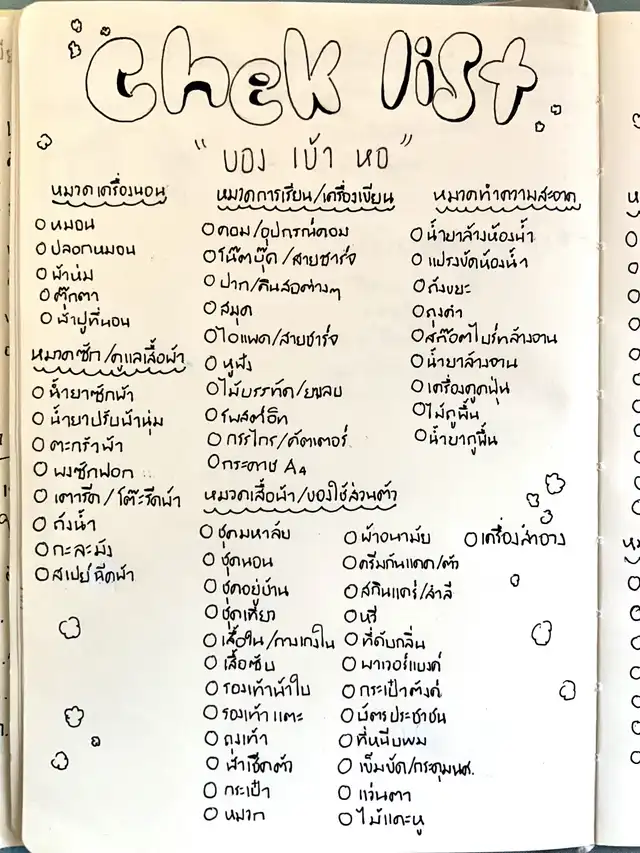 Chek list
" ของ เข้า หอ "
หมวดเครื่องนอน
หมอน
ปลอกหมอน
ผ้านุ่ม
ตุ๊กตา
ผ้าปูที่นอน
หมวดซัก/ดูแลเสื้อผ้า
น้ำยาซักผ้า
น้ำยาปรับผ้านุ่ม
ตะกร้าผ้า
ผงซักฟอก
เตารีด/โต๊ะรีดผ้า
ถังน้ำ
กะละมัง
สเปย์ฉีดผ้า
หมวดการเรียน/เครื่องเขียน
คอม/อุปกรณ์คอม
โน๊ตบุ๊ค/สายชาร์จ
ปาก/ดินสอต่างๆ
สมุด
ไอแพด/สายชาร์จ
หูฟัง
ไม้บรรทัด/ยางลบ
โพสต์อิท
กรรไกร/คัตเตอร์
กระดาษ A4
หมวดทำความสะอาด
น้ำยาล้างห้องน้ำ
แปรงขัดห้องน้ำ
ถังขยะ
ถุงดำ
สก๊อตไบร์ทล้างจาน
น้ำยาล้างจาน
เครื่องดูดฝุ่น
ไม้ถูพื้น
น้ำยาถูพื้น
หมวดเสื้อผ้า/ของใช้ส่วนตัว
ชุดมหาลัย
ชุดนอน
ชุดอยู่บ้าน
ชุดเที่ยว
เสื้อใน/กางเกงใน
เสื้อซับ
รองเท้าผ้าใบ
รองเท้าแตะ
ถุงเท้า
ผ้าเช็ดตัว
กระเป๋า
หมวก
ผ้าอนามัย
ครีมกันแดด/ตัว
สกินแคร์/สำลี
หวี
ที่ดับกลิ่น
พาวเวอร์แบงค์
กระเป๋าตังค์
บัตรประชาชน
ที่หนีบผม
เข็มขัด/กระดุมนศ.
แว่นตา
ไม้แคะหู
เครื่องสำอาง